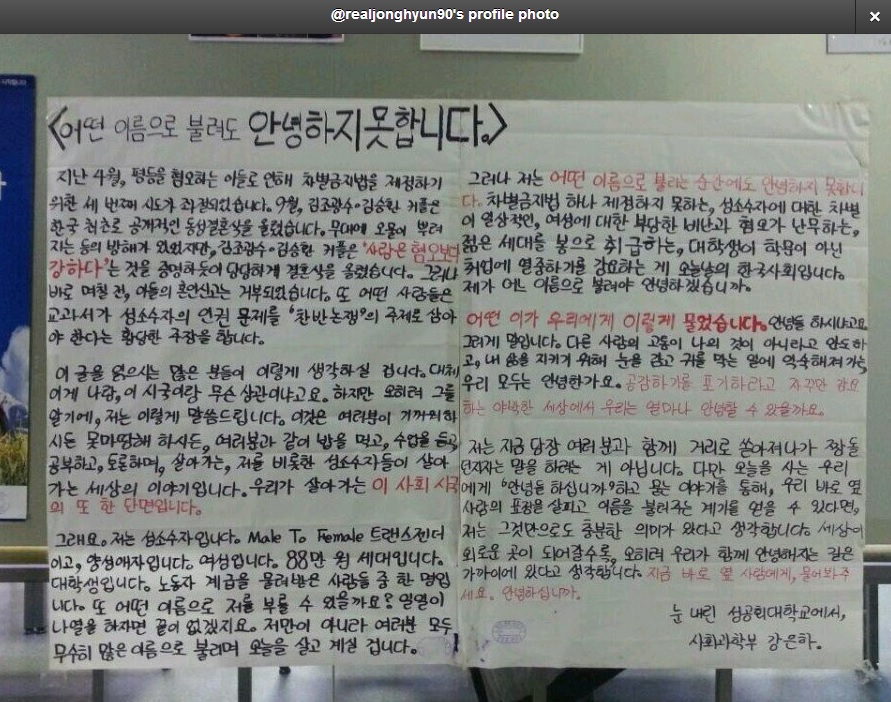 @realjonghyun90's profile photo
<어떤 이름으로 불려도 안녕하지못합니다.>
지난 4월, 평등을 혐오하는 이들로 인해 차별금지법을 제정하기
위한 세 번째 시도가 좌절되었습니다. 9월, 김조광수·김승환 커플은
한국 최초로 공개적인 동성결혼식을 올렸습니다. 무대에 오물이 뿌려
지는 등의 방해가 있었지만, 김조광수·김승환 커플은 '사람은 혐오보다
강하다'는 것을 증명하듯이 당당하게 결혼식을 올렸습니다. 그러나
바로 며칠 전, 이들의 혼인신고는 거부되었습니다. 또 어떤 사람들은
교과서가 성소수자의 인권 문제를 '찬반논쟁'의 주제로 삼아
야 한다는 황당한 주장을 합니다.
이 글을 읽으시는 많은 분들이 이렇게 생각하실 겁니다. 대체
이게 나랑, 이 시국이랑 무슨 상관이냐고요. 하지만 오히려 그를
알기에, 저는 이렇게 말씀드립니다. 이것은 여러분이 기꺼워하
시든 못마땅해 하시든, 여러분과 같이 밥을 먹고, 수업을 듣고,
공부하고, 토론하며, 살아가는, 저를 비롯한 성소수자들이 살아
가는 세상의 이야기입니다. 우리가 살아가는 이 사회 시국
의 또 한 단면입니다.
그래요. 저는 성소수자입니다. Male To Female 트랜스젠더
이고, 양성애자입니다. 여성입니다. 88만 원 세대입니다.
대학생입니다. 노동자 계급을 물려받은 사람들 중 한 명입
니다. 또 어떤 이름으로 저를 부를 수 있을까요? 일일이
나열을 하자면 끝이 없겠지요. 저만이 아니라 여러분 모두
무수히 많은 이름으로 불리며 오늘을 살고 계실 겁니다.
그러나 저는 어떤 이름으로 불리는 순간에도 안녕하지 못합니
다. 차별금지법 하나 제정하지 못하는, 성소수자에 대한 차별
이 일상적인, 여성에 대한 부당한 비난과 혐오가 난무하는,
젊은 세대를 봉으로 취급하는, 대학생이 학문이 아닌
취업에 열중하기를 강요하는 게 오늘날의 한국사회입니다.
제가 어느 이름으로 불려야 안녕하겠습니까.
어떤 이가 우리에게 이렇게 물었습니다. 안녕들 하시냐고요.
그러게 말입니다. 다른 사람의 고통이 나의 것이 아니라고 안도하
고, 내 삶을 지키기 위해 눈을 감고 귀를 막는 일에 익숙해져 가는,
우리 모두는 안녕한가요. 공감하기를 포기하라고 자꾸만 강요
하는 야박한 세상에서 우리는 얼마나 안녕할 수 있을까요.
저는 지금 당장 여러분과 함께 거리로 쏟아져나가 짱돌을
던지자는 말을 하려는 게 아닙니다. 다만 오늘을 사는 우리
에게 "안녕들 하십니까"하고 묻는 이야기를 통해, 우리 바로 옆
사람의 표정을 살피고 이름을 불러주는 계기를 얻을 수 있다면,
저는 그것만으로도 충분한 의미가 있다고 생각합니다. 세상이
외로운 곳이 되어갈수록, 오히려 우리가 함께 안녕해지는 길은
가까이에 있다고 생각합니다. 지금 바로 옆 사람에게, 물어봐주
세요. 안녕하십니까.
눈 내린 성공회대학교에서,
사회과학부 강은하.